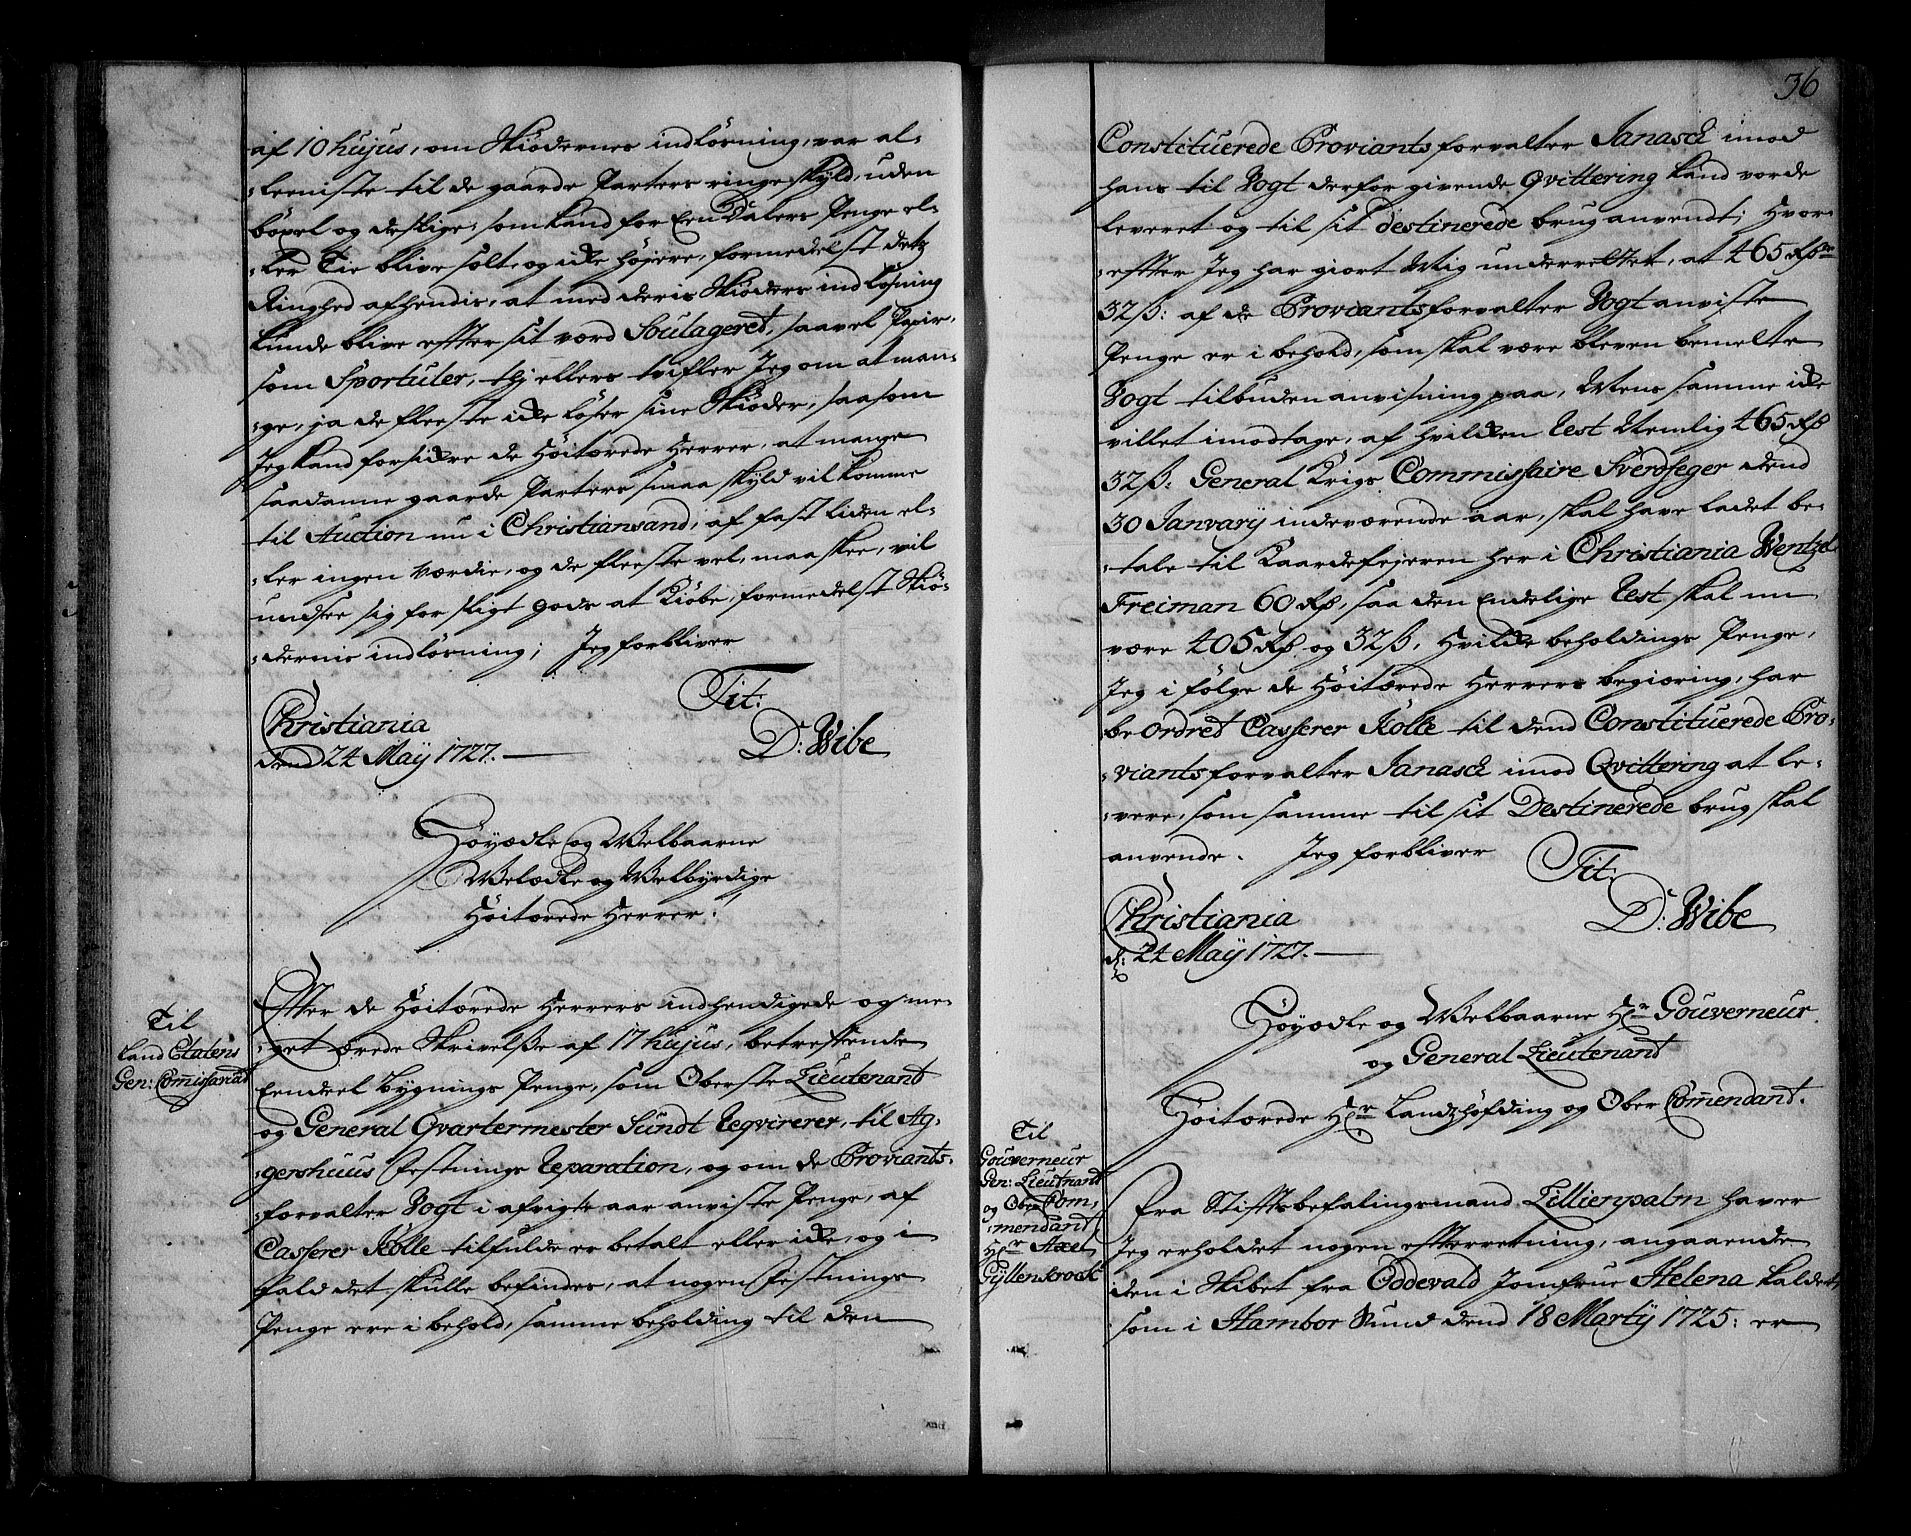 af 10 hujus, om Skiödernes indløsning, var al-
-leeniste til de gaarde Parters ringe Skyld, uden
böxel og deslige, som kand for Een Dalers Penge el-
-ler Tie blive solt, og icke højere, formedelst detz
Ringhed afhendis, at med deris Skiöders indløsning
kunde blive efter sit værd Soulageret, saavel Papir,
som Sportuler, thj ellers tvifler Jeg om at man-
-ge, ja de fleeste icke løser sine Skiöder, saasom
Jeg kand forsickre de Høitærede Herrer, at mange
saadanne gaarde Parters smaa skyld vil komme
til Auction nu i Christiansand, af fast liden el-
-ler ingen værdie, og de fleeste vel, maaskee, vil
undsee sig for sligt gods at kiöbe, formedelst Skiö-
-dernis indløsning; Jeg forbliver
Tit:
Christiania
dend 24 Maÿ 1727.
D: Wibe
Høyædle og Welbaarne
Welædle og Welbyrdige
Høitærede Herrer!
Til
Land Etatens
Gen: Commissariat
Efter de Høitærede Herrers indhendigede og me-
-get ærede Skrivelse af 17 hujus, betreffende
Eendeel bygnings Penge, som Oberste Lieutenant
og General Qvartermester Sundt Reqvirerer, til Ag-
-gershuus Festnings Reparation, og om de Proviants-
-forvalter Vogt i afvigte aar anviste Penge, af
Casserer Kolle tilfulde er betalt eller icke, og i
fald det skulle befindes, at nogen Festnings
Penge ere i behold, samme beholding til den
36
Constituerede Proviantsforvalter Janasch imod
hans til Vogt derfor givende Qvittering kand vorde
leveret og til sit destinerede brug anvendt; Hvor-
-effter Jeg har giort Mig underrettet, at 465 Rdr
32ß: af de Proviantsforvalter Vogt anviste
Penge er i behold, som skal være bleven bemelte
Vogt tilbuden anvisning paa, Mens samme icke
villet imodtage, af hvilcken Rest Nemlig 465 Rd
32ß: General Krigs Commissaire Sverdfeger dend
30 Janvarij indeværende aar, skal have ladet be-
-tale til Kaardefejeren her i Christiania Wentzel
Freiman 60 Rd, saa den Endelige Rest skal nu
være 405 Rd og 32ß, Hvilcke beholdings Penge,
Jeg i følge de Høitærede Herrers begiæring, har
be Ordret Casserer Kolle til dend Constituerede Pro-
-viantsforvalter Janasch imod Qvittering at le-
-vere, som samme til sit Destinerede brug skal
anvende. Jeg forbliver
Tit:
Christiania
d: 24 Maÿ 1727.
D: Wibe
Høyædle og Welbaarne Hr Gouverneur
og General Lieutenand
Høitærede Hr Landzhöfding og Ober Commendant.
Til
Gouverneur
Gen: Lieutnand
og Ober Com-
-mendant
Hr Axel
Gÿllenkrock
Fra Stiftsbefalingsmand Lillienpalm haver
Jeg erholdet nogen efterretning, angaaende
den i Skibet fra Oddevald Jomfrue Helena kaldet,
som i Hambor Sund dend 18 Martij 1725: er